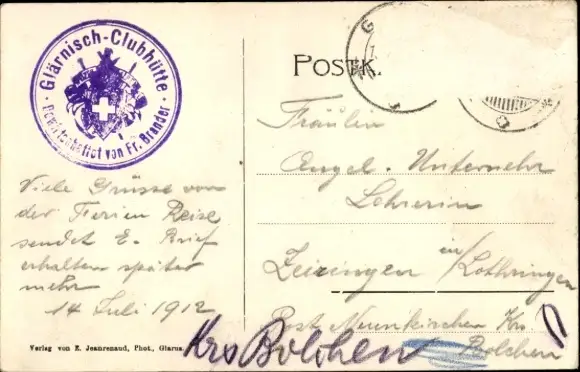 Glärnisch-Clubhütte
Bewirtschaftet von Fr. Brander
Viele Grüsse von
der Ferien Reise
sendet E. Brief
erhalten später
mehr
14 Juli 1912
Verlag von E. Jeanrenaud, Phot., Glarus
POSTK
Fräulein
Angel. Unternehr
Lehrerin
Zeiringen in/Lothringen
Post Neunkirchen Krs
Bolchen
Krs Bolchen